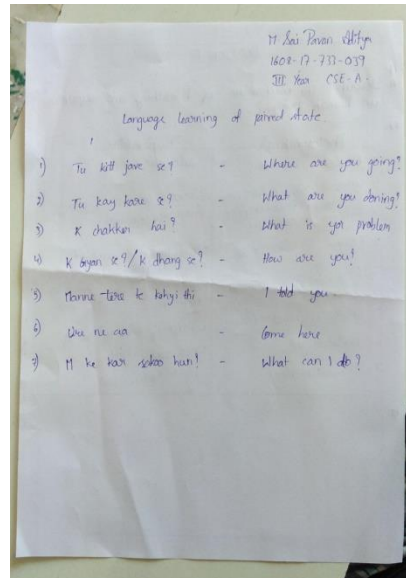 M Sai Pavan Aditya
1608-17-733-039
III Year CSE-A.
Language learning of paired state.
1) Tu kitt jave se? - Where are you going?
2) Tu kay kare se? - What are you doning?
3) K chakker hai? - What is yor problem
4) K gyan se?/K dhang se? - How are you?
5) Manne tere te kahyi thi - I told you
6) ne aa - Come here
7) M ke kar sakoo hun? - What can I do?